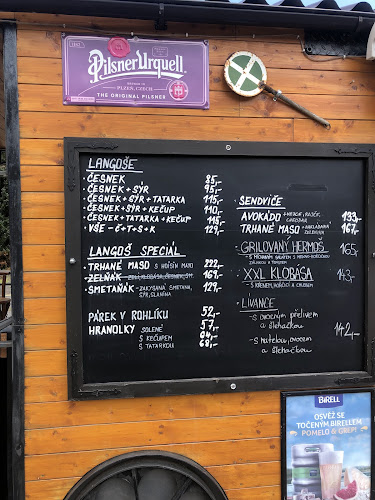 Pilsner Urquell
PLZEŇ, CZECH
THE ORIGINAL PILSNER
LANGOŠE
· ČESNEK 85,-
· ČESNEK + SÝR 95,-
· ČESNEK + SÝR + TATARKA 115,-
· ČESNEK + SÝR + KEČUP 110,-
· ČESNEK + TATARKA + KEČUP
· VŠE - Č+T+S+K 129,-
LANGOŠ SPECIAL
TRHANÉ MASO S HOISIN MAJO 222,-
ZELŇÁK 167,-
SMETAŇÁK - ZAKYSANÁ SMETANA, 129,-
SÝR, SLANINA
PÁREK V ROHLÍKU 52,-
HRANOLKY SOLENÉ 57,-
S KEČUPEM 64,-
S TATARKOU 68,-
SENDVIČE
AVOKÁDO + VEJCE, 133,-
TRHANÉ MASO + NAKLÁDANÁ 167,-
ZELENINA
GRILOVANÝ HERMOŠ 165,-
XXL KLOBÁSA 143,-
- S KŘENEM, HOŘČICÍ A CHLEBEM
LÍVANCE
- s ovocným přelivem
a šlehačkou 142,-
- s nutellou, ovocem
a šlehačkou
BIRELL
OSVĚŽ SE
TOČENÝM BIRELLEM
POMELO & GREP!